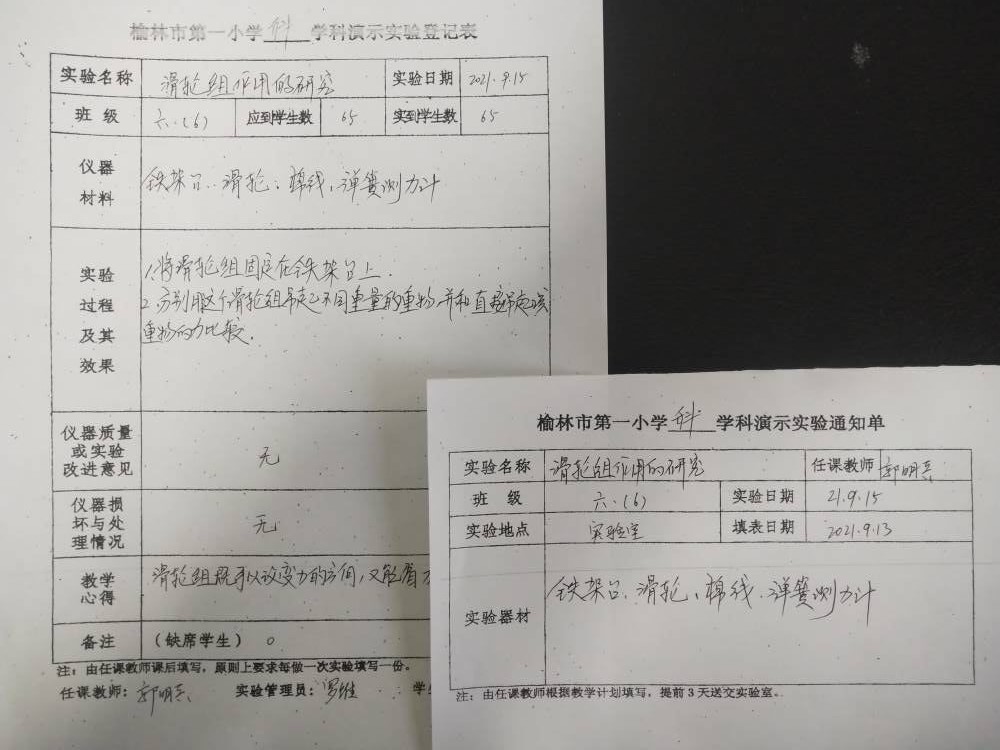 榆林市第一小学 科 学科演示实验登记表
实验名称 滑轮组作用的研究 实验日期 2021.9.15
班 级 六.(6) 应到学生数 65 实到学生数 65
仪器
材料
铁架台、滑轮、棉线、弹簧测力计
实验
过程
及其
效果
1、将滑轮组固定在铁架台上.
2、分别用这个滑轮组吊起不同重量的重物并和直接吊起
重物的力比较.
仪器质量
或实验
改进意见
无
仪器损
坏与处
理情况
无
教学
心得
滑轮组既可以改变力的方向,又能省
备注 (缺席学生) 0
注:由任课教师课后填写,原则上要求每做一次实验填写一份。
任课教师: 郭明兵 实验管理员: 罗维 学
榆林市第一小学 科 学科演示实验通知单
实验名称 滑轮组作用的研究 任课教师 郭明兵
班 级 六.(6) 实验日期 21.9.15
实验地点 实验室 填表日期 2021.9.13
实验器材 铁架台、滑轮、棉线、弹簧测力计
注:由任课教师根据教学计划填写,提前3天送交实验室。